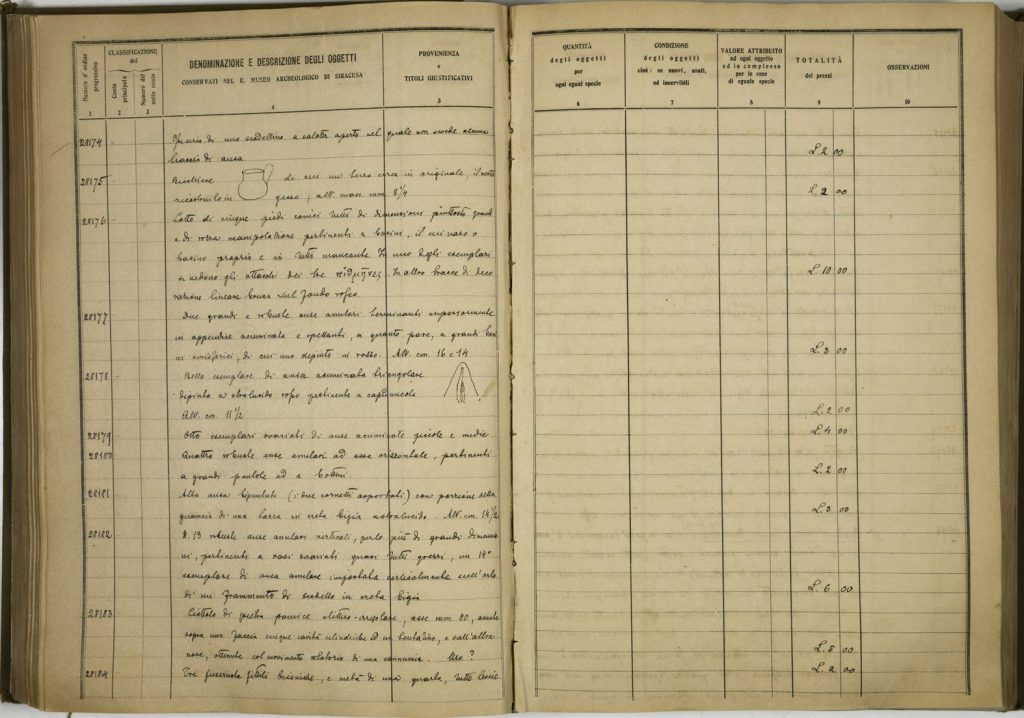 Numero d'ordine progressivo
CLASSIFICAZIONE
del
Conto principale
Numero del sotto conto
DENOMINAZIONE E DESCRIZIONE DEGLI OGGETTI
CONSERVATI NEL R. MUSEO ARCHEOLOGICO DI SIRACUSA
PROVENIENZA
e
TITOLI GIUSTIFICATIVI
1 2 3 4 5
28174 di uno scodellino a calotta aperto nel quale non si vede alcuna
traccia di ansa
28175 Bicchiere di cui un terzo circa in originale, il resto
ricostruito in gesso, alt. mass. mm. 8 1/4
28176 Lotto di cinque piedi conici tutti di dimensioni piuttosto grandi
e di rozza manipolazione pertinenti a bacini, il cui vaso o
bacino proprio è in tutti mancante. In uno degli esemplari
si vedono gli attacchi dei tre In altro tracce di deco
razione lineare bruna sul fondo rosso.
28177 Due grandi e robuste anse anulari terminanti superiormente
in appendice acuminata e spettanti, a quanto pare, a grandi baci
ni emisferici, di cui uno dipinto in rosso. Alt. cm. 16 e 14
28178 Bello esemplare di ansa acuminata triangolare
dipinta a stralucido rosso pertinente a capeduncola
Alt. cm. 11 1/2
28179 Otto esemplari svariati di anse acuminate piccole e medie
28180 Quattro robuste anse anulari ad asse orizzontale, pertinenti
a grandi pentole ad a bottini
28181 Alta ansa bipuntuta (i due cornetti asportati) con porzione della
guancia di una tazza in creta bigia stralucida. Alt. cm. 14 1/2
28182 N. 13 robuste anse anulari verticali, per lo più di grandi dimensio
ni, pertinenti a vasi svariati quasi tutti grezzi, un 14°
esemplare di ansa anulare impostata verticalmente sull'orlo
di un frammento di scodella in creta bigia
28183 Ciottolo di pietra pomice ellittico-irregolare, asse mm. 80, avente
sopra una faccia cinque cavità cilindriche ed un tentativo, e sull'altra
nove, ottenute col movimento rotatorio di una cannuccia. Uso?
28184 Tre fuseruola fittili biconiche, e metà di una quarta, tutte
QUANTITÀ
degli oggetti
per
ogni eguali specie
6
CONDIZIONE
degli oggetti
cioè: se nuovi, usati,
od inservibili
7
VALORE ATTRIBUITO
ad ogni oggetto
ed in complesso
per le cose
di eguale specie
8
TOTALITÀ
dei prezzi
9
OSSERVAZIONI
10
L. 2 00
L. 2 00
L. 10 00
L. 3 00
L. 2 00
L. 4 00
L. 2 00
L. 3 00
L. 6 00
L. 5 00
L. 2 00